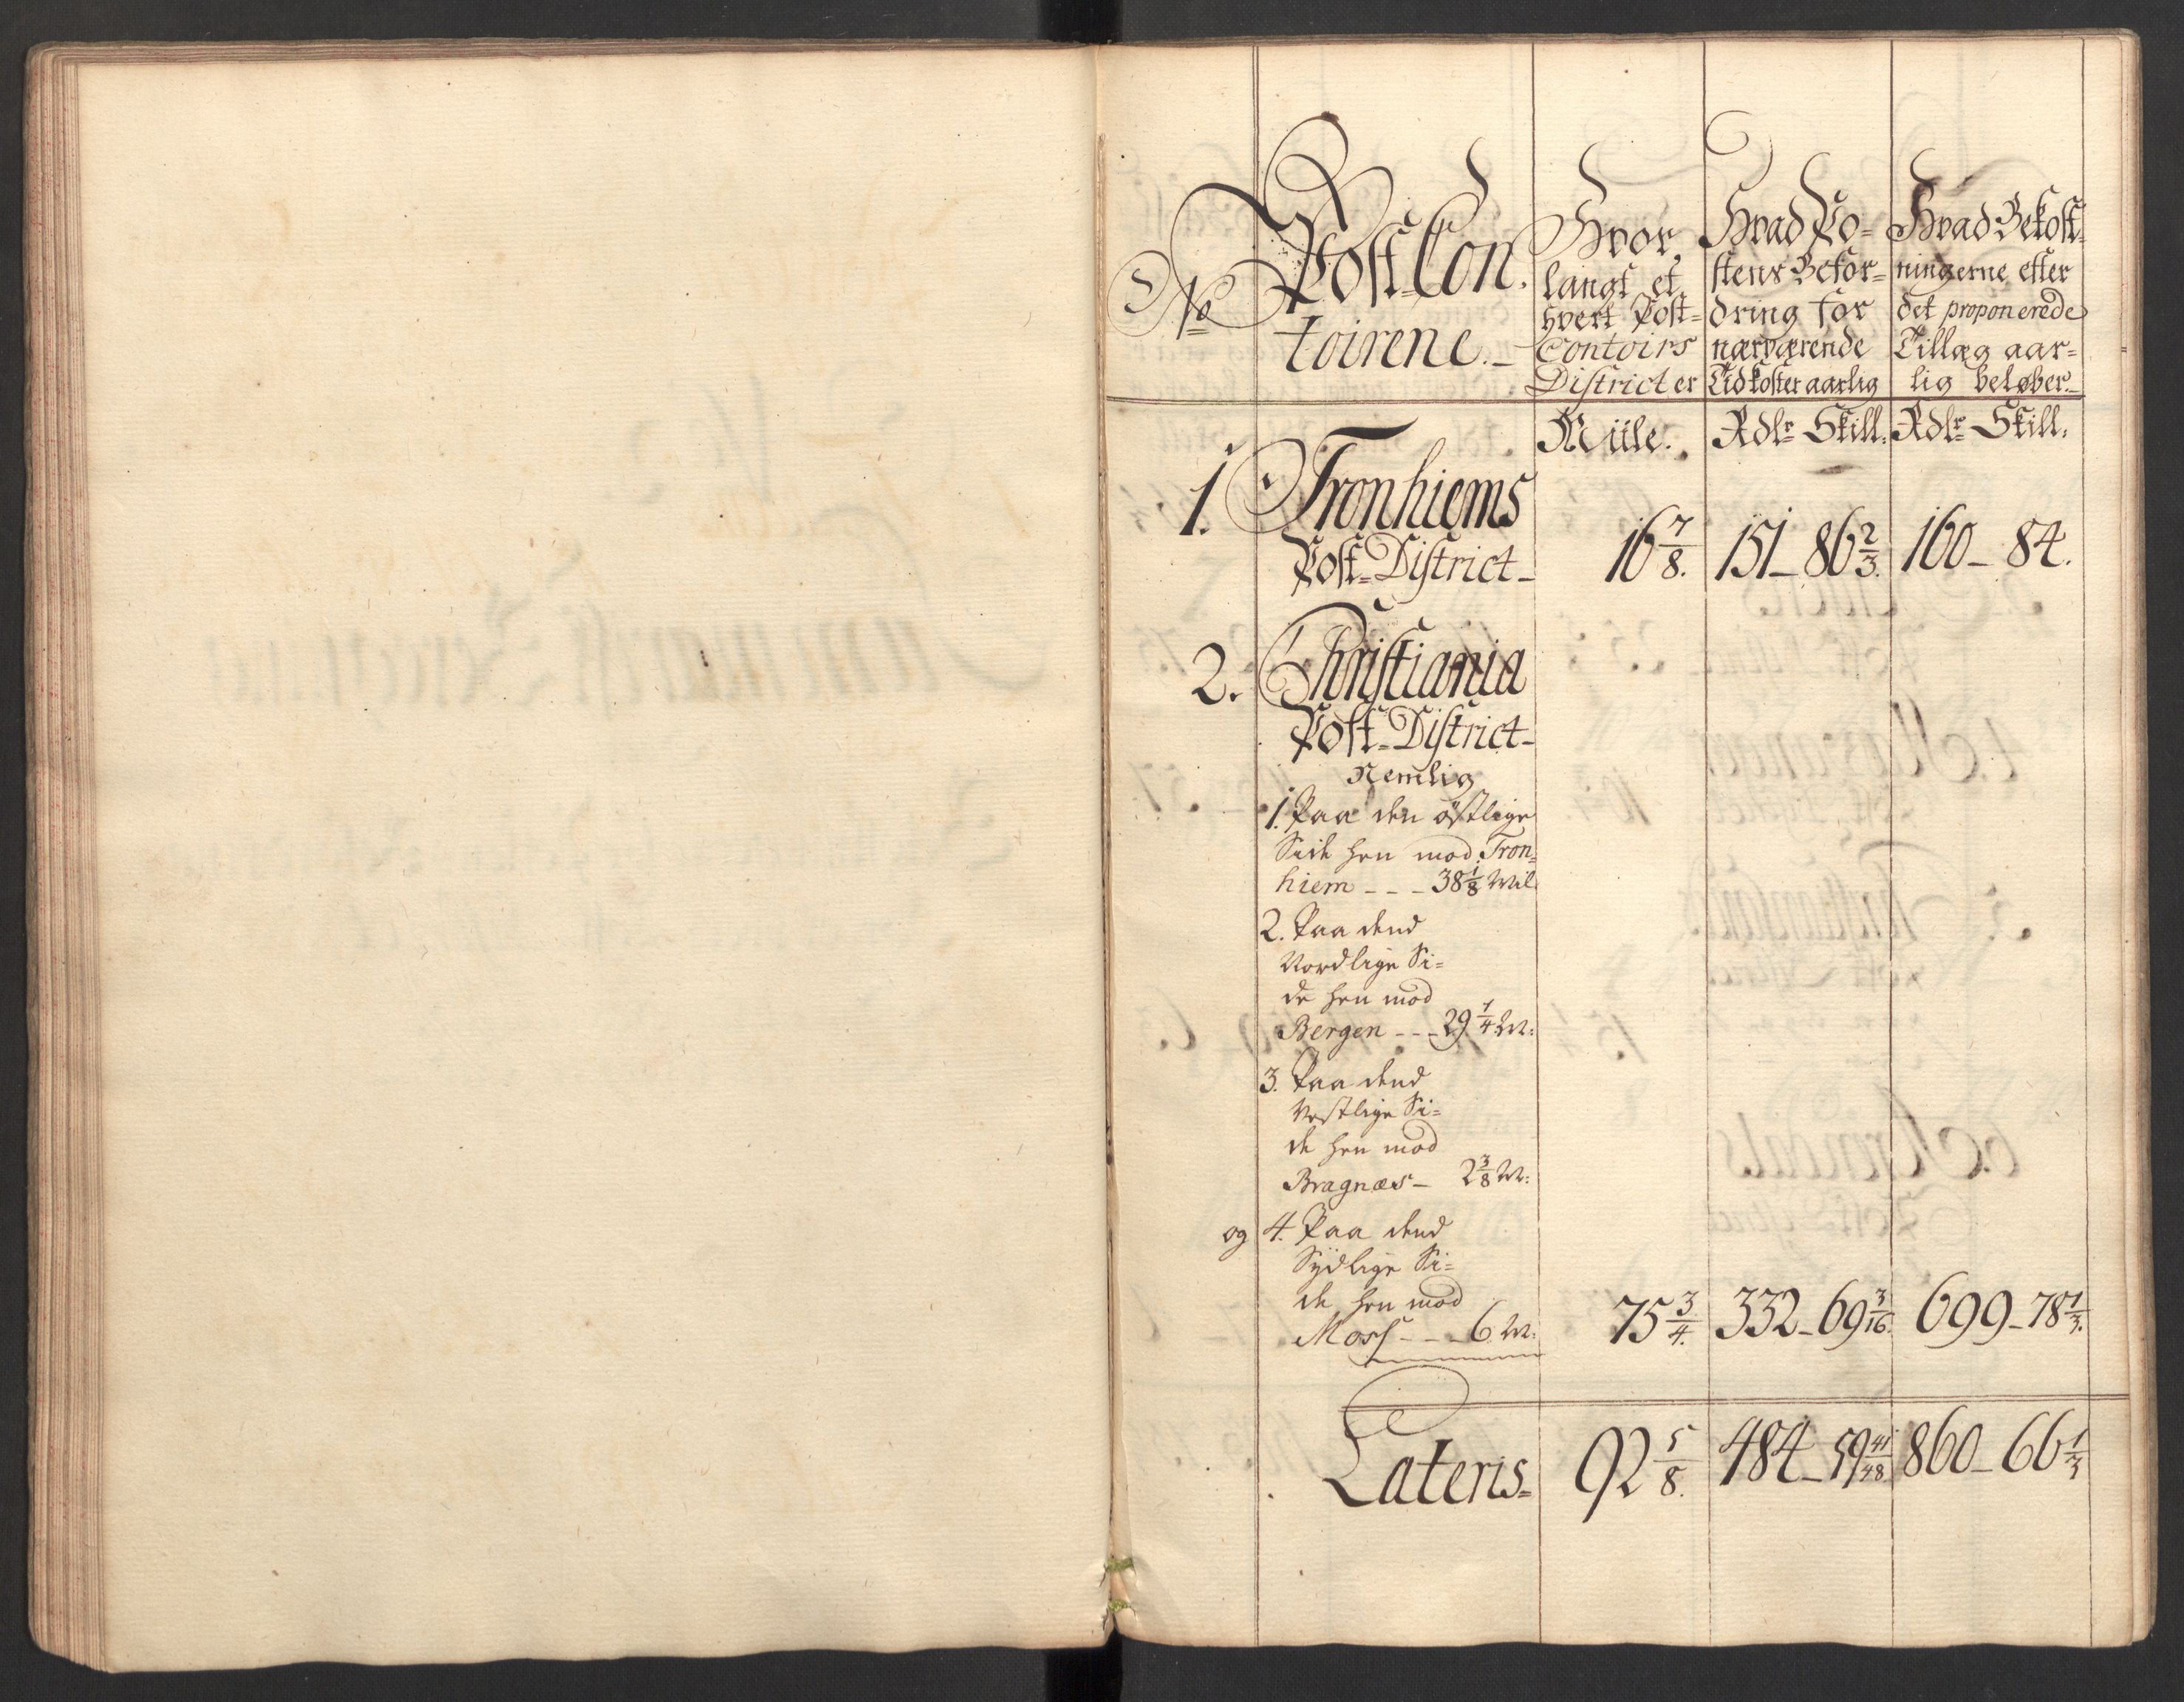 No
Post-Con-
toirene.
Hvor
langt et
hvert Post-
Contoirs
District er
Hvad Po-
stens Befor-
dring for
nærværende
Tid koster aarlig
Hvad Bekost-
ningerne efter
det proponerede
Tillæg aar-
lig beløber.
Miile.
Rdlr Skill.
Rdlr Skill.
1. Tronhiems
Post-District- 16 7/8. 151- 86 2/3. 160- 84.
2. Christiania
Post-District-
Nemlig
1. Paa den östlige
Side hen mod Tron-
hiem - - - 38 1/8 Mil
2. Paa dend
Nordlige Si-
de hen mod
Bergen - - - 29 1/4 M:
3. Paa dend
Vestlige Si-
de hen mod
Bragnæs - 2 3/8 M:
og 4. Paa dend
Sydlige Si-
de hen mod
Moss - - - 6 M: 75 3/4. 332- 69 3/16. 699- 78 1/3.
Lateris- 92 5/8. 484- 59 41/48 860- 66 1/3